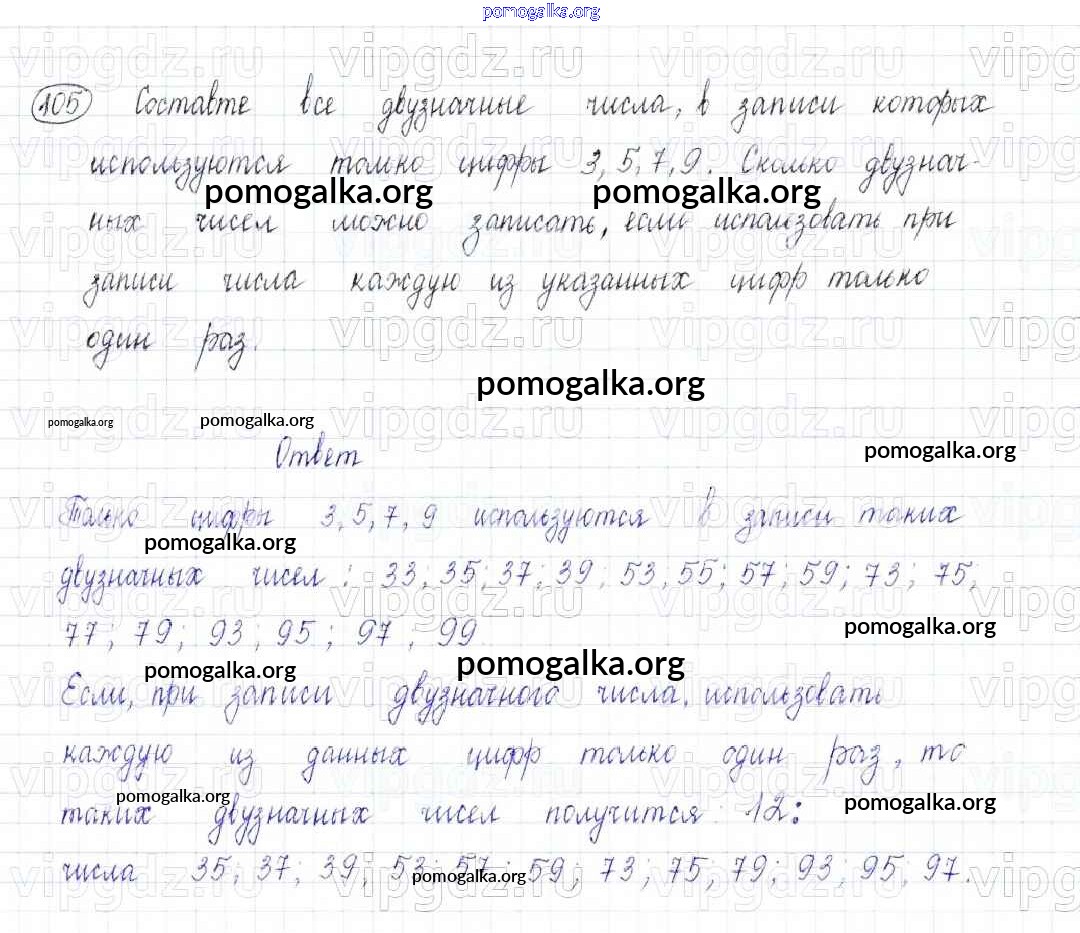 pomogalka.org
105 Составте все двузначные числа, в записи которых
используются только цифры 3, 5, 7, 9. Сколько двузнач-
pomogalka.org pomogalka.org
ных чисел можно записать, если использовать при
записи числа каждую из указанных цифр только
один раз.
pomogalka.org
pomogalka.org pomogalka.org
Ответ
pomogalka.org
Только цифры 3, 5, 7, 9 используются в записи таких
pomogalka.org
двузначных чисел: 33; 35; 37; 39; 53, 55; 57; 59; 73; 75;
77; 79; 93; 95; 97, 99
pomogalka.org
pomogalka.org pomogalka.org
Если, при записи двузначного числа, использовать
каждую из данных цифр только один раз, то
pomogalka.org pomogalka.org
таких двузначных чисел получится 12:
числа 35; 37; 39; 53; 57; 59; 73; 75, 79; 93; 95, 97.
pomogalka.org
vipgdz.ru